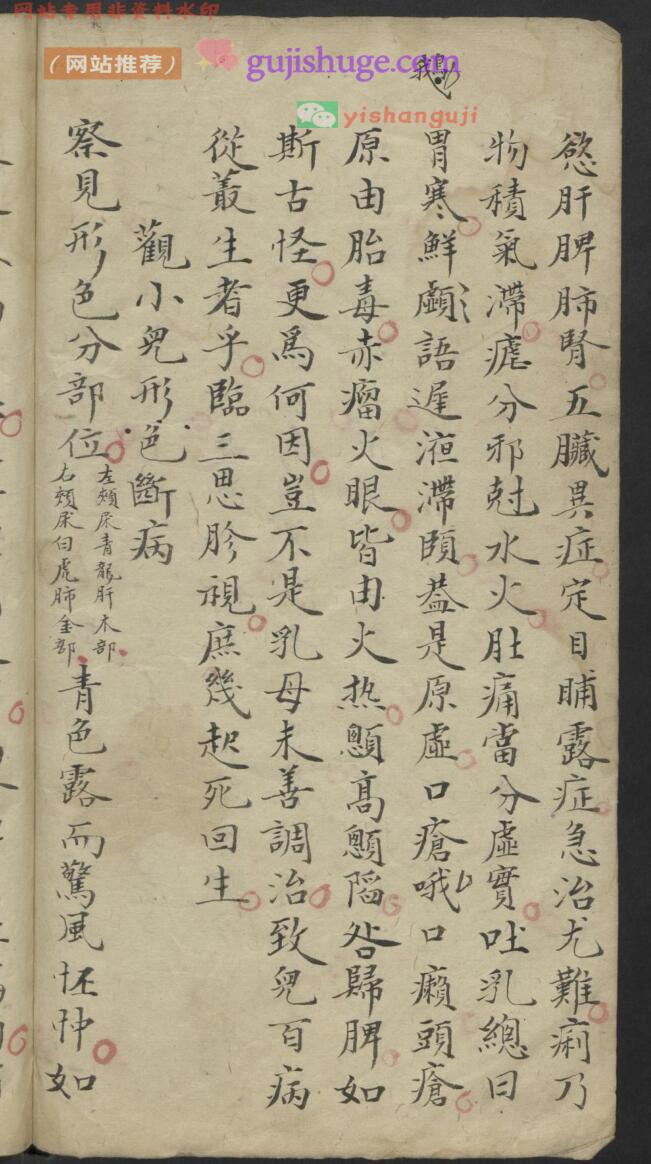 网站专用非资料水印
（网站推荐）
gujishuge.com
yishanguji
鵝
慾肝脾肺腎五臟異症定目晡露症急治尤難痢乃
物積氣滯瘧分邪尅水火肚痛當分虛實吐乳總曰
胃寒鮮顱語遲洍滯頤葢是原虛口瘡哦口癩頭瘡
原由胎毒赤瘤火眼皆由火热顖高顖陷咎歸脾如
斯古怪更爲何因豈不是乳母未善調治致兒百病
從叢生者乎臨三思胗視庶幾起死回生
觀小兒形色斷病
察見形色分部位
左頰尿青龍肝木部
右頰尿白虎肺金部
青色露而驚風怔忡如